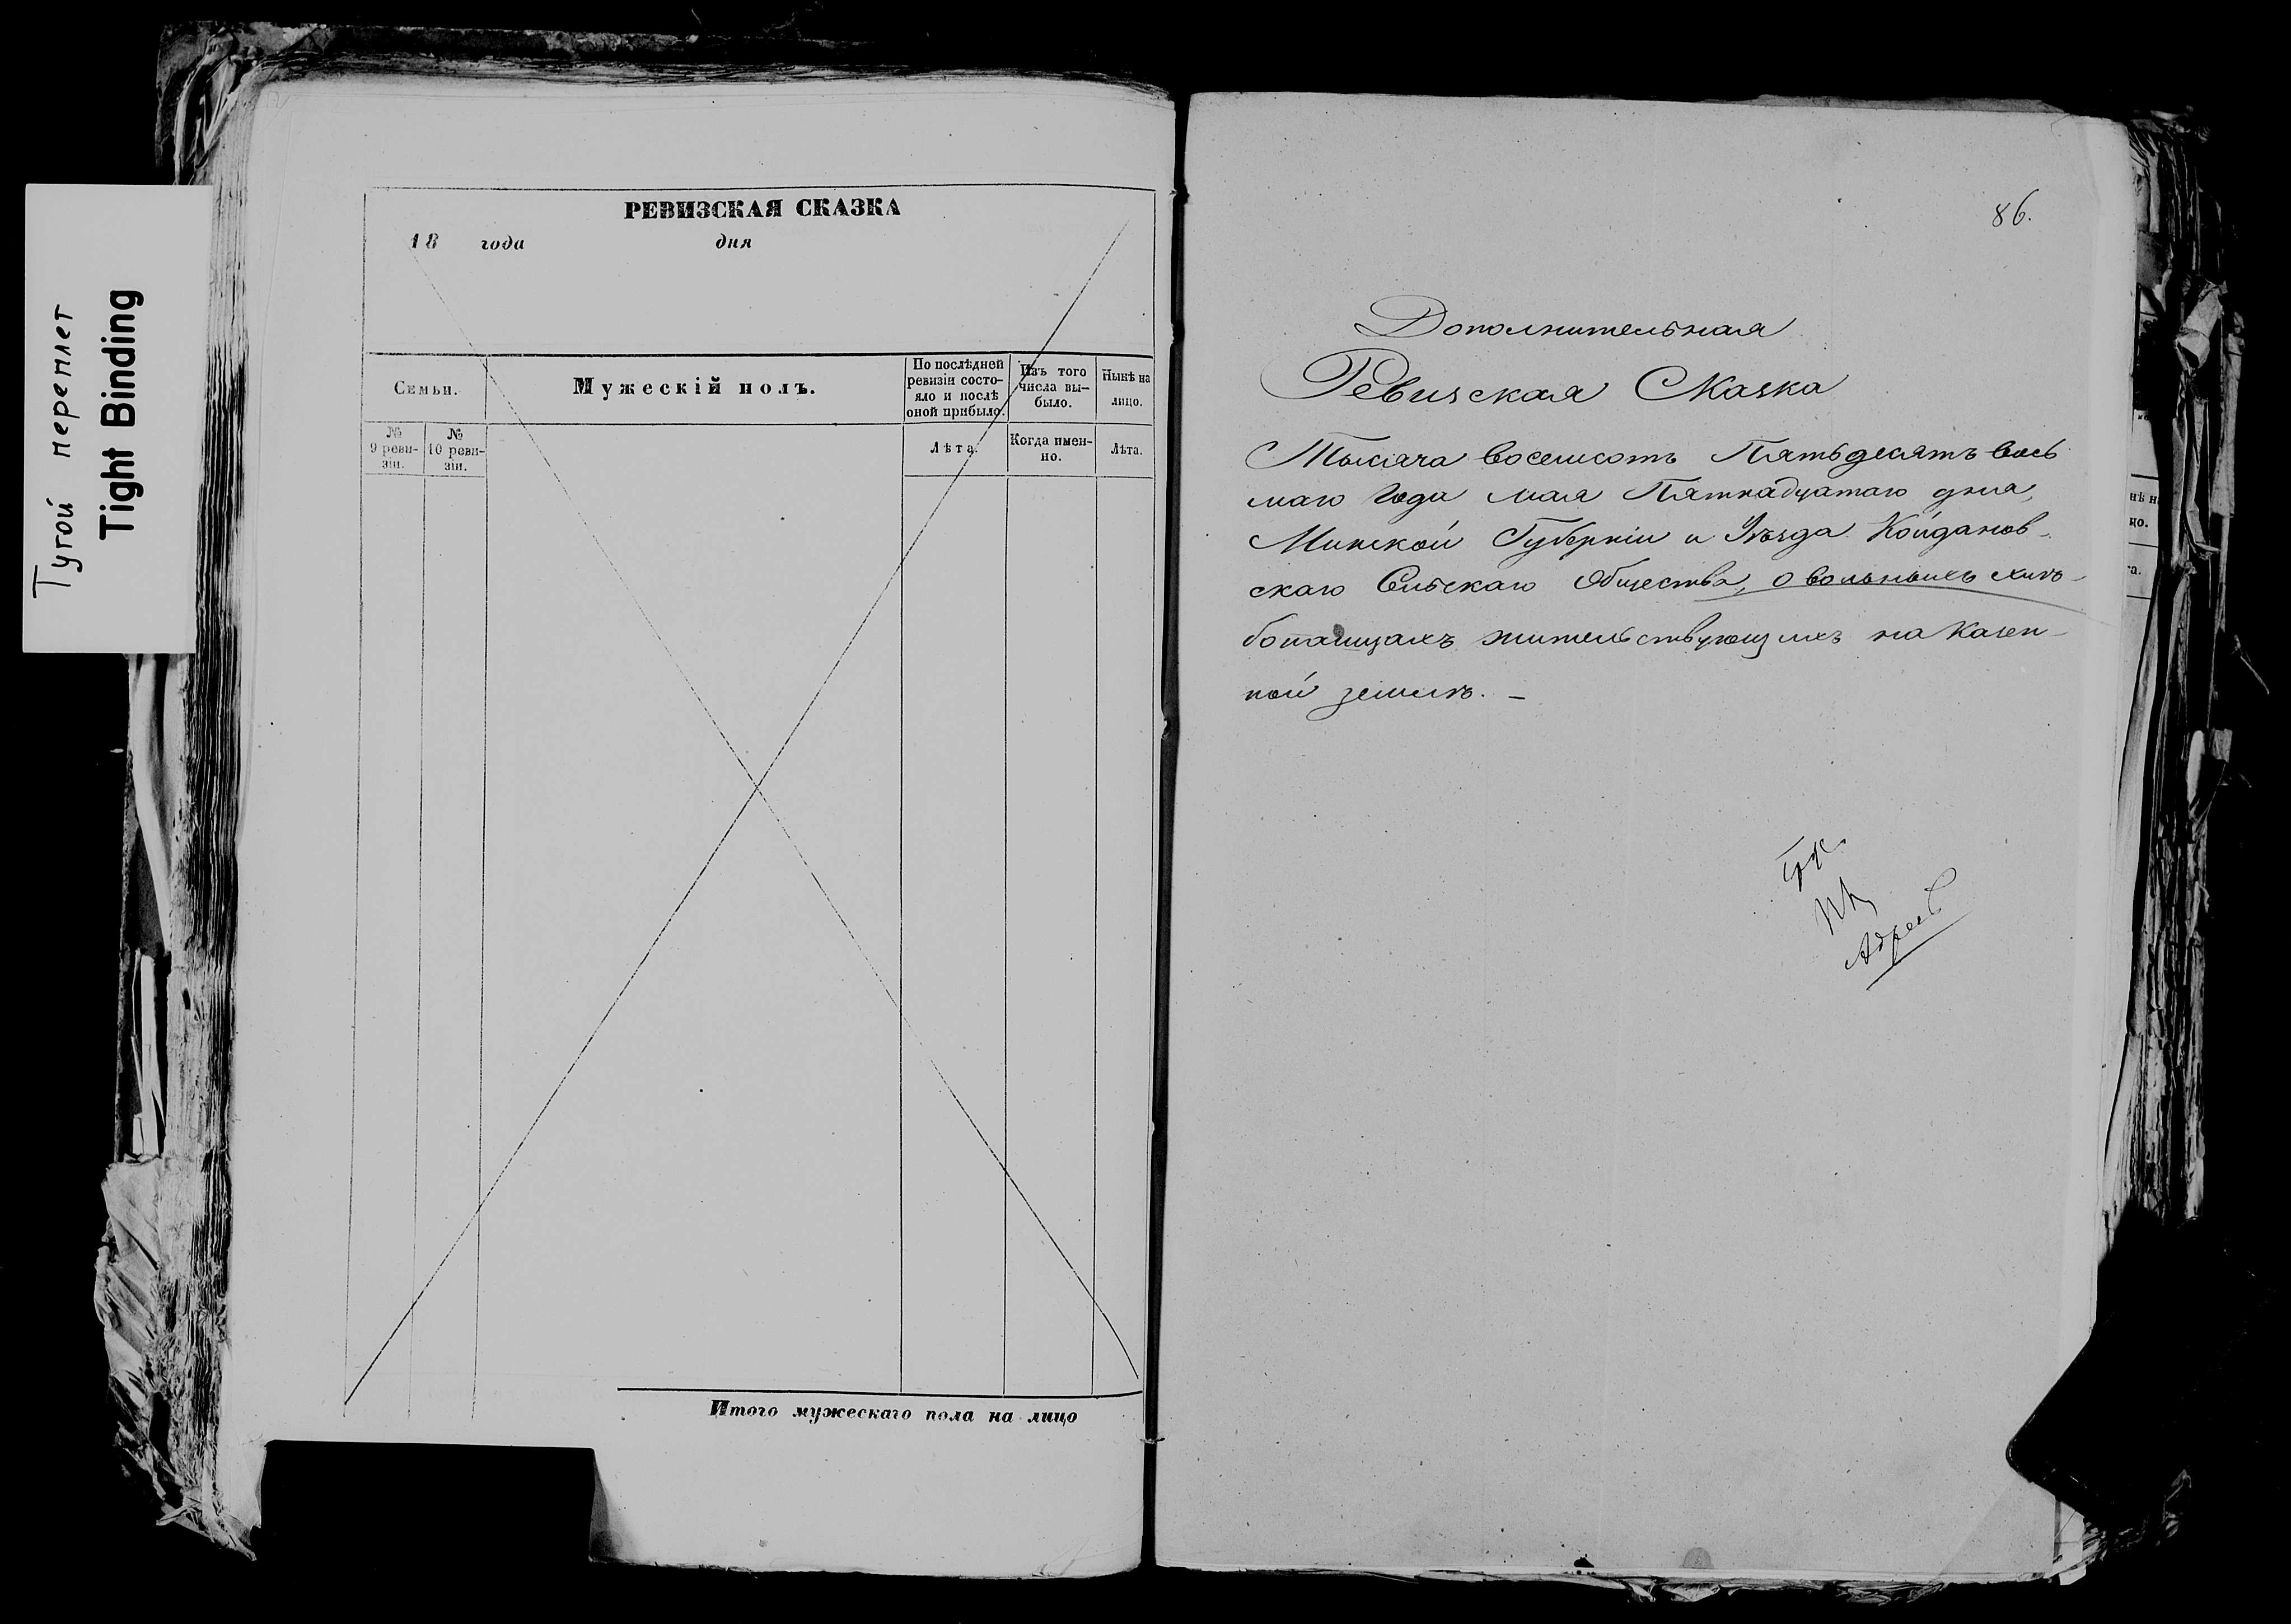 Тугой переплет
Tight Binding
РЕВИЗСКАЯ СКАЗКА
18 года дня
Семьи.
Мужескій полъ.
По послѣдней
ревизіи состо-
яло и послѣ
оной прибыло.
Изъ того
числа вы-
было.
Нынѣ на
лицо.
№
9 реви-
зіи.
№
10 реви-
зіи.
Лѣта.
Когда имен-
но.
Лѣта.
Итого мужескаго пола на лицо
86.
Дополнительная
Ревизская Сказка
Тысяча восемсотъ Пятьдесятъ вось
маго Года мая Пятнадцатаго дня,
Минской Губерніи и Уѣзда Койданов-
скаго Сельскаго Общества, о вольныхъ хлѣ-
бопашцахъ жительствующихъ на казен-
ной землѣ. –
нѣ н
цо.
та.